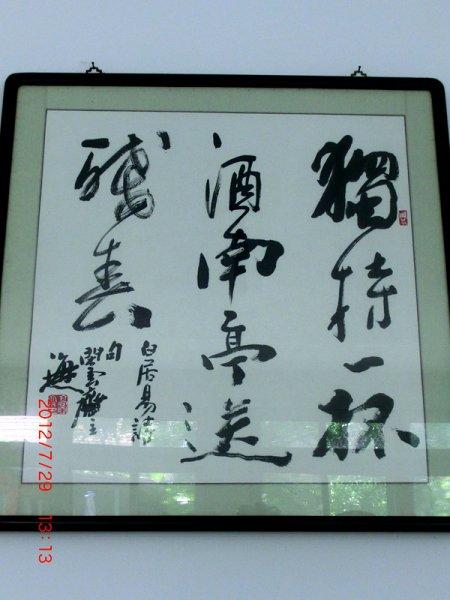 獨持一杯
酒南亭送
殘春
白居易詩
句
2012/7/29 13:13